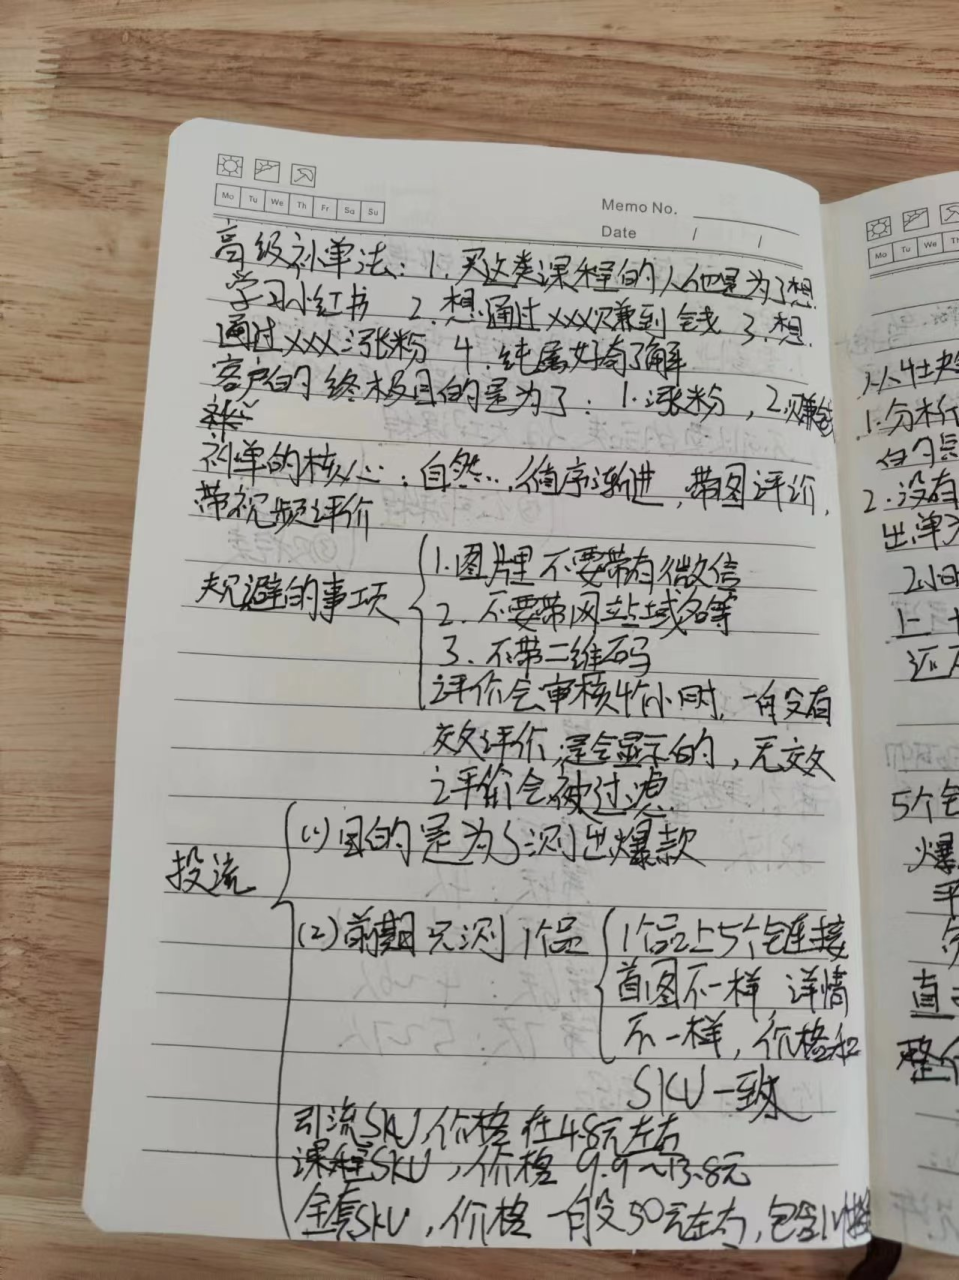 Memo No.
Date / /
Mo Tu We Th Fr Sa Su
高级补单法：1.买这类课程的人他是为了想
学习小红书 2.想通过xxx来赚到钱 3.想
通过xxx涨粉 4.纯属好奇了解
客户的终极目的是为了：1.涨粉，2.赚钱
补单的核心：自然，循序渐进，带图评价，
带视频评价
规避的事项
1.图片里不要带有微信
2.不要带网站域名等
3.不带二维码
评价会审核4个小时，一般有
效评价是会显示的，无效
评价会被过滤
投流
(1)目的是为了测出爆款
(2)前期只测1个品
1个品上5个链接
首图不一样 详情
不一样，价格和
SKU一致
引流SKU，价格在4.8元左右
课程SKU，价格9.9～13.8元
全套SKU，价格一般50元左右，包含
Mo Tu We Th
1.分析
2.没有
出单
2小时
上
还
5个
爆
平
直
整个